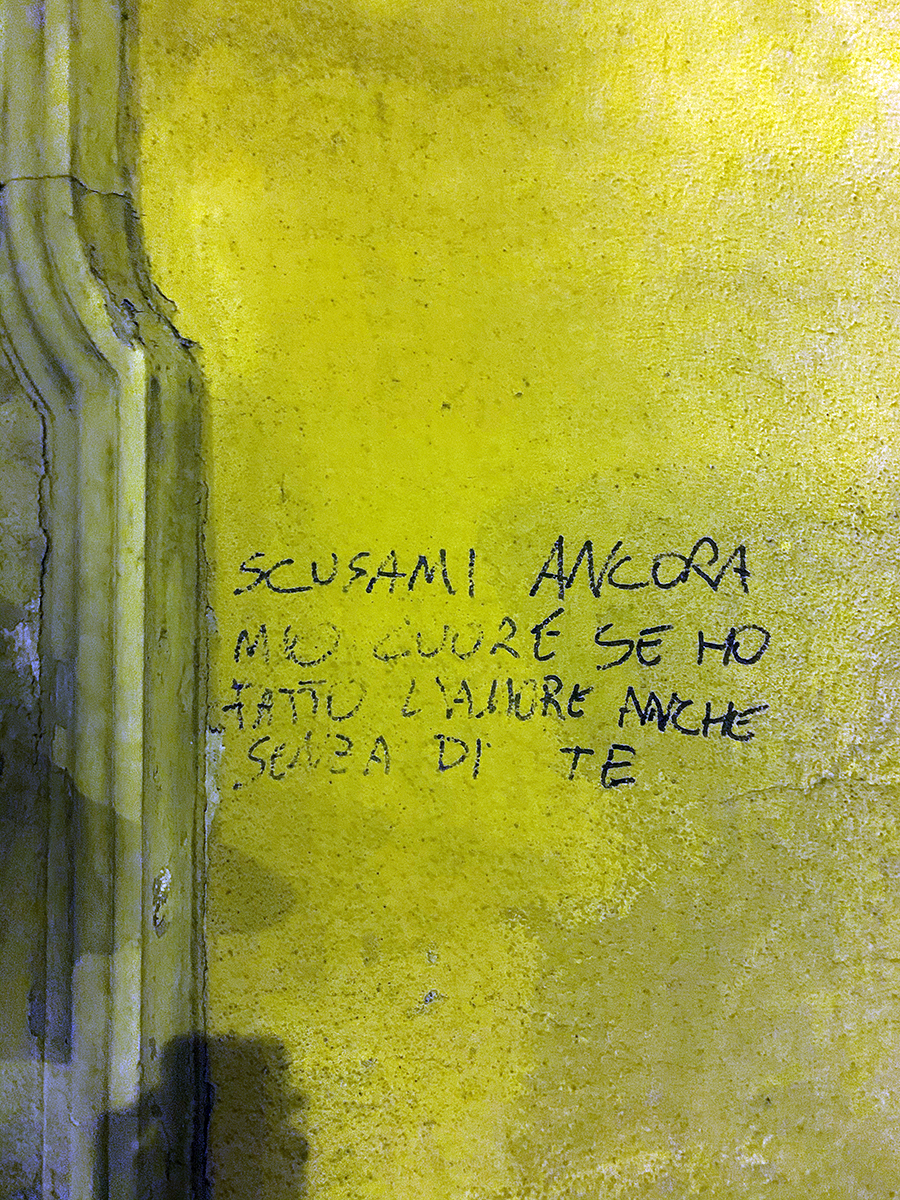 SCUSAMI ANCORA
MIO CUORE SE HO
FATTO L'AMORE ANCHE
SENZA DI TE